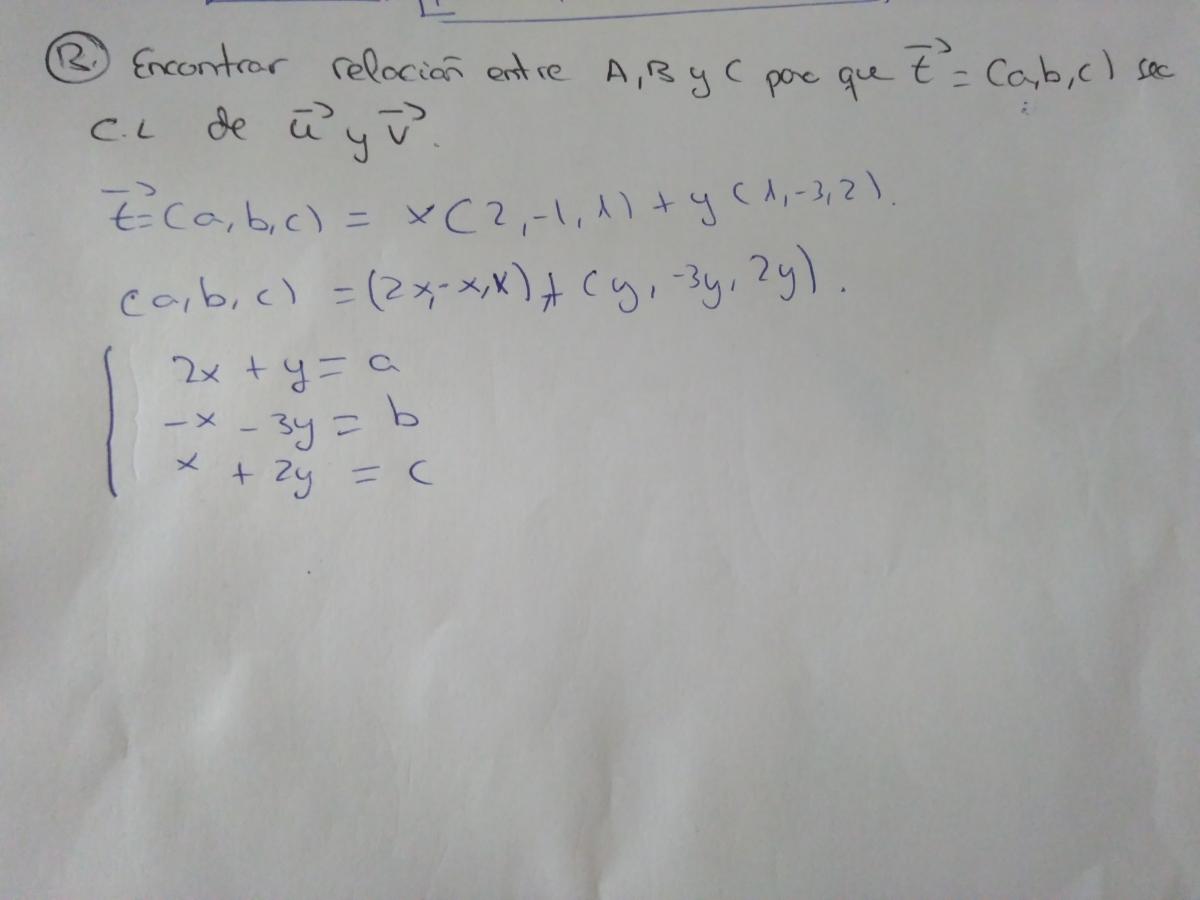 B. Encontrar relación entre A, B y C para que t⃗ = (a, b, c) sea
C.L de u⃗ y v⃗.
t⃗ = (a, b, c) = x(2, -1, 1) + y(1, -3, 2).
(a, b, c) = (2x, -x, x) + (y, -3y, 2y).
2x + y = a
-x - 3y = b
x + 2y = c